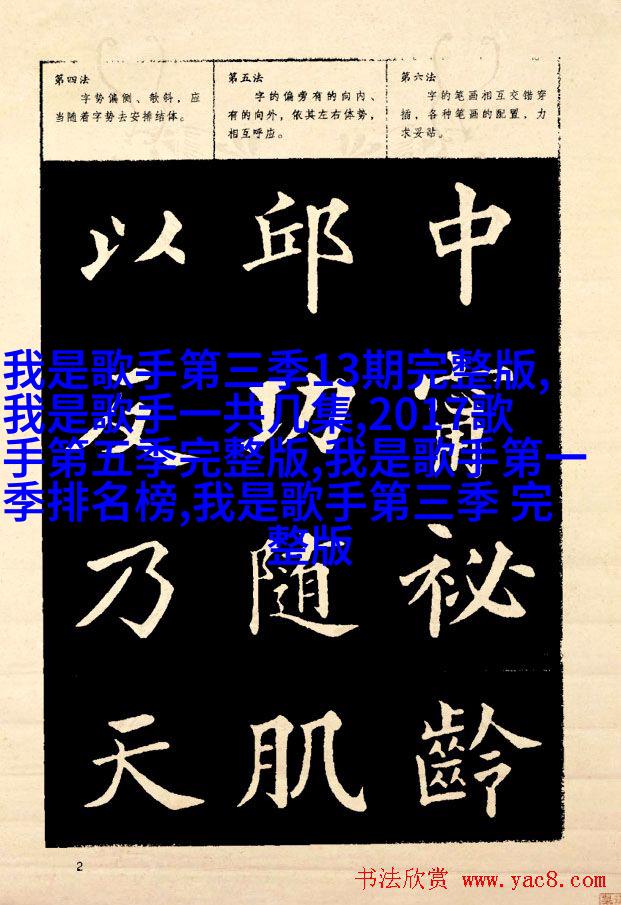 第四法
字势偏侧、欹斜，应
当随着字势去安排结体。
第五法
字的偏旁有的向内、
有的向外，依其左右体势，
相互呼应。
第六法
字的笔画相互交错穿
插，各种笔画的配置，力
求妥贴。
以 邱 中
我是歌手第三季13期完整版,
我是歌手一共几集,2017歌
手第五季完整版,我是歌手第一
季排名榜,我是歌手第三季 完
整版
及 功
乃 随 祕
天 肌 齡
2
书法欣赏 www.yac8.com